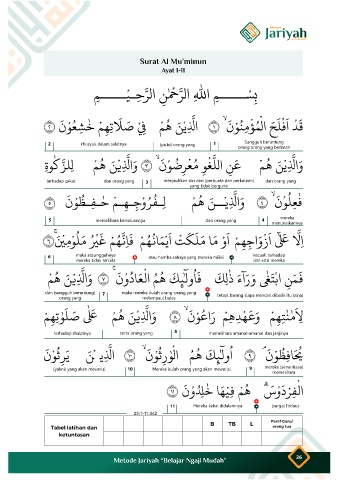 Jariyah
Surat Al Mu'minun
Ayat 1-11
بِسْمِ اللهِ الرَّحْمٰنِ الرَّحِيْمِ
قَدْ اَفْلَحَ الْمُؤْمِنُوْنَ ۙ ١ الَّذِيْنَ هُمْ فِيْ صَلَاتِهِمْ خٰشِعُوْنَ ٢
Sungguh beruntung orang-orang yang beriman 1 (yaitu) orang yang khusyuk dalam salatnya 2
وَالَّذِيْنَ هُمْ عَنِ اللَّغْوِ مُعْرِضُوْنَ ۙ ٣ وَالَّذِيْنَ هُمْ لِلزَّكٰوةِ
dan orang yang menjauhkan diri dari (perbuatan dan perkataan) yang tidak berguna 3 dan orang yang terhadap zakat
فٰعِلُوْنَ ۙ ٤ وَالَّذِيْنَ هُمْ لِفُرُوْجِهِمْ حٰفِظُوْنَ ٥
mereka menunaikannya 4 dan orang yang memelihara kemaluannya 5
اِلَّا عَلٰٓى اَزْوَاجِهِمْ اَوْ مَا مَلَكَتْ اَيْمَانُهُمْ فَاِنَّهُمْ غَيْرُ مَلُوْمِيْنَ ٦
kecuali terhadap istri-istri mereka atau hamba sahaya yang mereka miliki maka sesungguhnya mereka tidak tercela 6
فَمَنِ ابْتَغٰى وَرَآءَ ذٰلِكَ فَاُولٰٓئِكَ هُمُ الْعَادُوْنَ ۚ ٧ وَالَّذِيْنَ هُمْ
tetapi barang siapa mencari di balik itu (zina) maka mereka itulah orang-orang yang melampaui batas 7 dan (sungguh beruntung) orang yang
لِاَمٰنٰتِهِمْ وَعَهْدِهِمْ رَاعُوْنَ ۙ ٨ وَالَّذِيْنَ هُمْ عَلٰى صَلَوٰتِهِمْ
memelihara amanat-amanat dan janjinya 8 serta orang yang terhadap shalatnya
يُحَافِظُوْنَ ۘ ٩ اُولٰٓئِكَ هُمُ الْوٰرِثُوْنَ ۙ ١٠ الَّذِيْنَ يَرِثُوْنَ
mereka (senantiasa) memelihara 9 Mereka itulah orang yang akan mewarisi 10 (yakni) yang akan mewarisi
الْفِرْدَوْسَ ۗ هُمْ فِيْهَا خٰلِدُوْنَ ١١
(surga) Firdaus Mereka kekal didalamnya 11
Tabel latihan dan ketuntasan
B TB L Paraf Guru/ orang tua
Metode Jariyah "Belajar Ngaji Mudah" 26